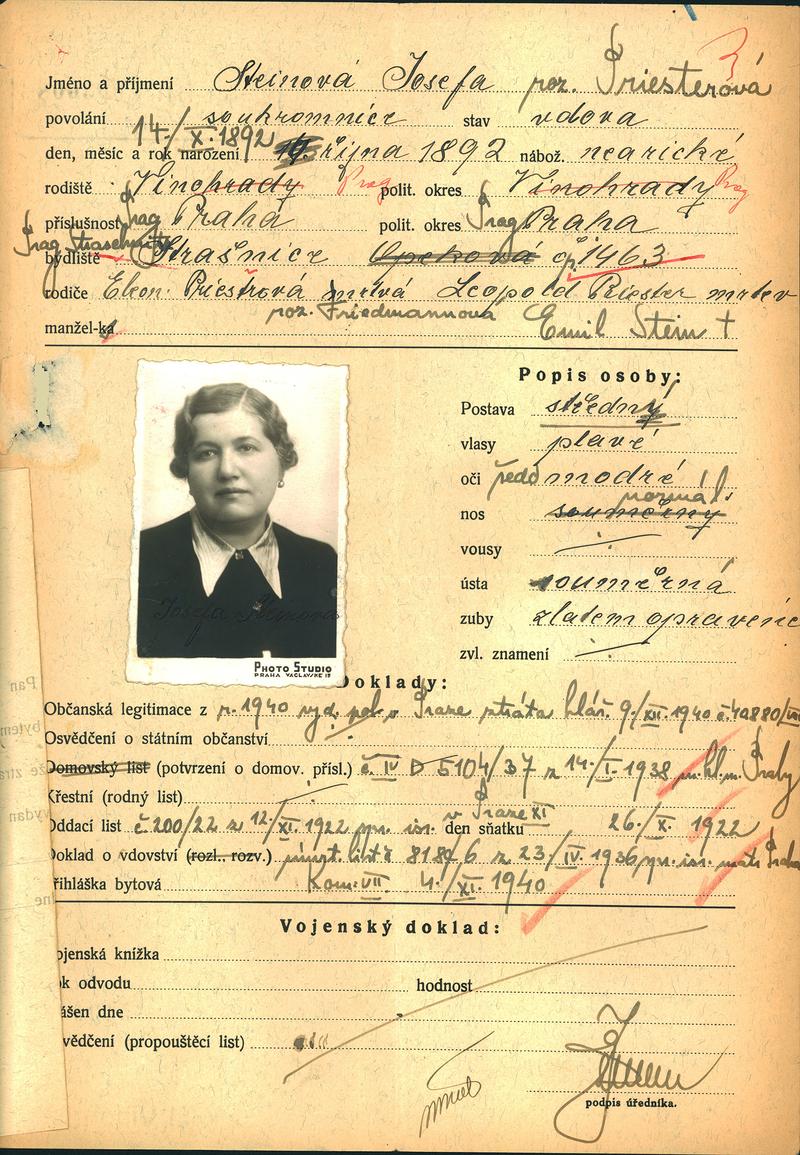 Jméno a příjmení Steinová Josefa roz. Priesterová
povolání soukromnice stav vdova
14./X. 1892
den, měsíc a rok narození října 1892 nábož. nearické
rodiště Vinohrady Prag polit. okres Vinohrady Prag
příslušnost Prag Praha polit. okres Prag Praha
Prag Straschnitz
bydliště Strašnice čp. 1463
rodiče Eleon. Priestrová mrtvá Leopold Priester mrtev
roz. Friedmannova
manžel-ka Emil Stein †
Popis osoby:
Postava středný
vlasy plavé
oči šedo modré
normál.
nos souměrný
vousy
ústa souměrná
zuby zlatem opravené
zvl. znamení
Josefa Steinová
PHOTO STUDIO
PRAHA VÁCLAVSKÉ 19
Doklady:
Občanská legitimace z r. 1940 vyd. pol. v Praze ztráta hláš. 9./XII. 1940
Osvědčení o státním občanství
Domovský list (potvrzení o domov. přísl.) č. IV D 5104/37 z 14./I. 1938 m. hl. m. Prahy
Křestní (rodný list)
v Praze XI
Oddací list č 200/22 z 12./XI. 1922 den sňatku 26./X. 1922
Doklad o vdovství (rozl., rozv.) úmrt. list č z 23/IV. 1936 Praha
řihláška bytová Kom. VII. 4./XI. 1940
Vojenský doklad:
ojenská knížka
ok odvodu hodnost
ášen dne
vědčení (propouštěcí list)
podpis úředníka.